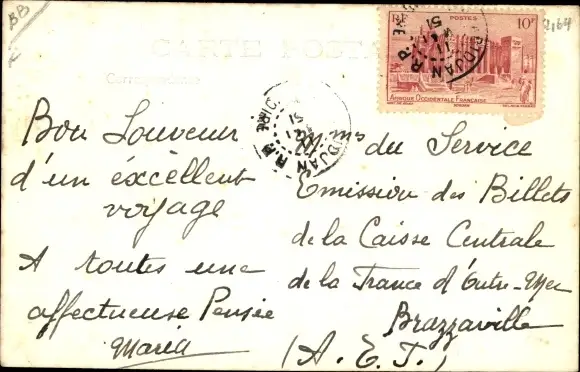 BB
CARTE POSTALE
Correspondance
RF POSTES 10F
AFRIQUE OCCIDENTALE FRANÇAISE
2164
Bon Souvenir
d'un éxcellent
voyage
A toutes une
affectueuse Pensée
Maria
du Service
Emission des Billets
de la Caisse Centrale
de la France d'Outre-Mer
Brazzaville
(A.E.F.)